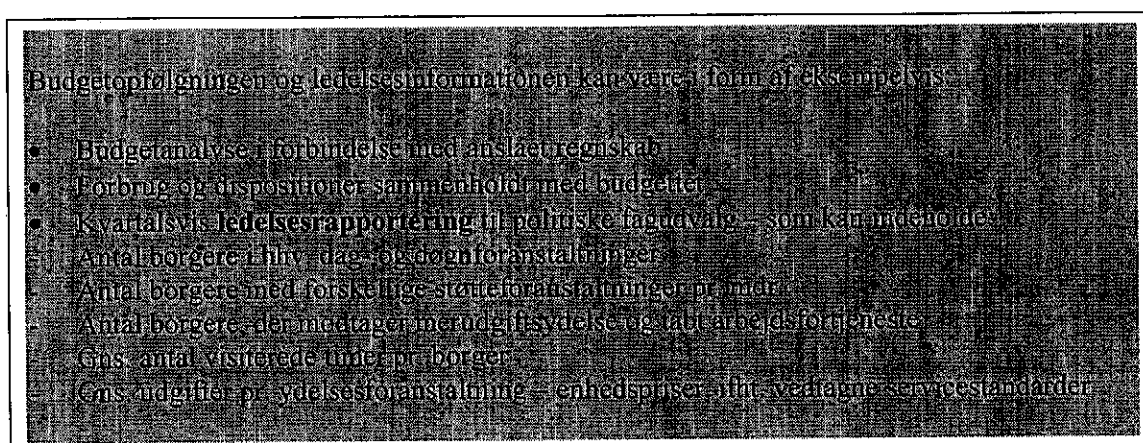 Budgetopfølgningen og ledelsesinformationen kan være i form af eksempelvis:
• Budgetanalyse i forbindelse med anslået regnskab
• Forbrug og dispositioner sammenholdt med budgettet
• Kvartalsvis ledelsesrapportering til politiske fagudvalg – som kan indeholde:
- Antal borgere i hhv. dag- og døgnforanstaltninger
- Antal borgere med forskellige støtteforanstaltninger pr. mdr.
- Antal borgere, der modtager merudgiftsydelse og tabt arbejdsfortjeneste
- Gns. antal visiterede timer pr. borger
- Gns. udgifter pr. ydelsesforanstaltning – enhedspriser jfht. vedtagne servicestandarder